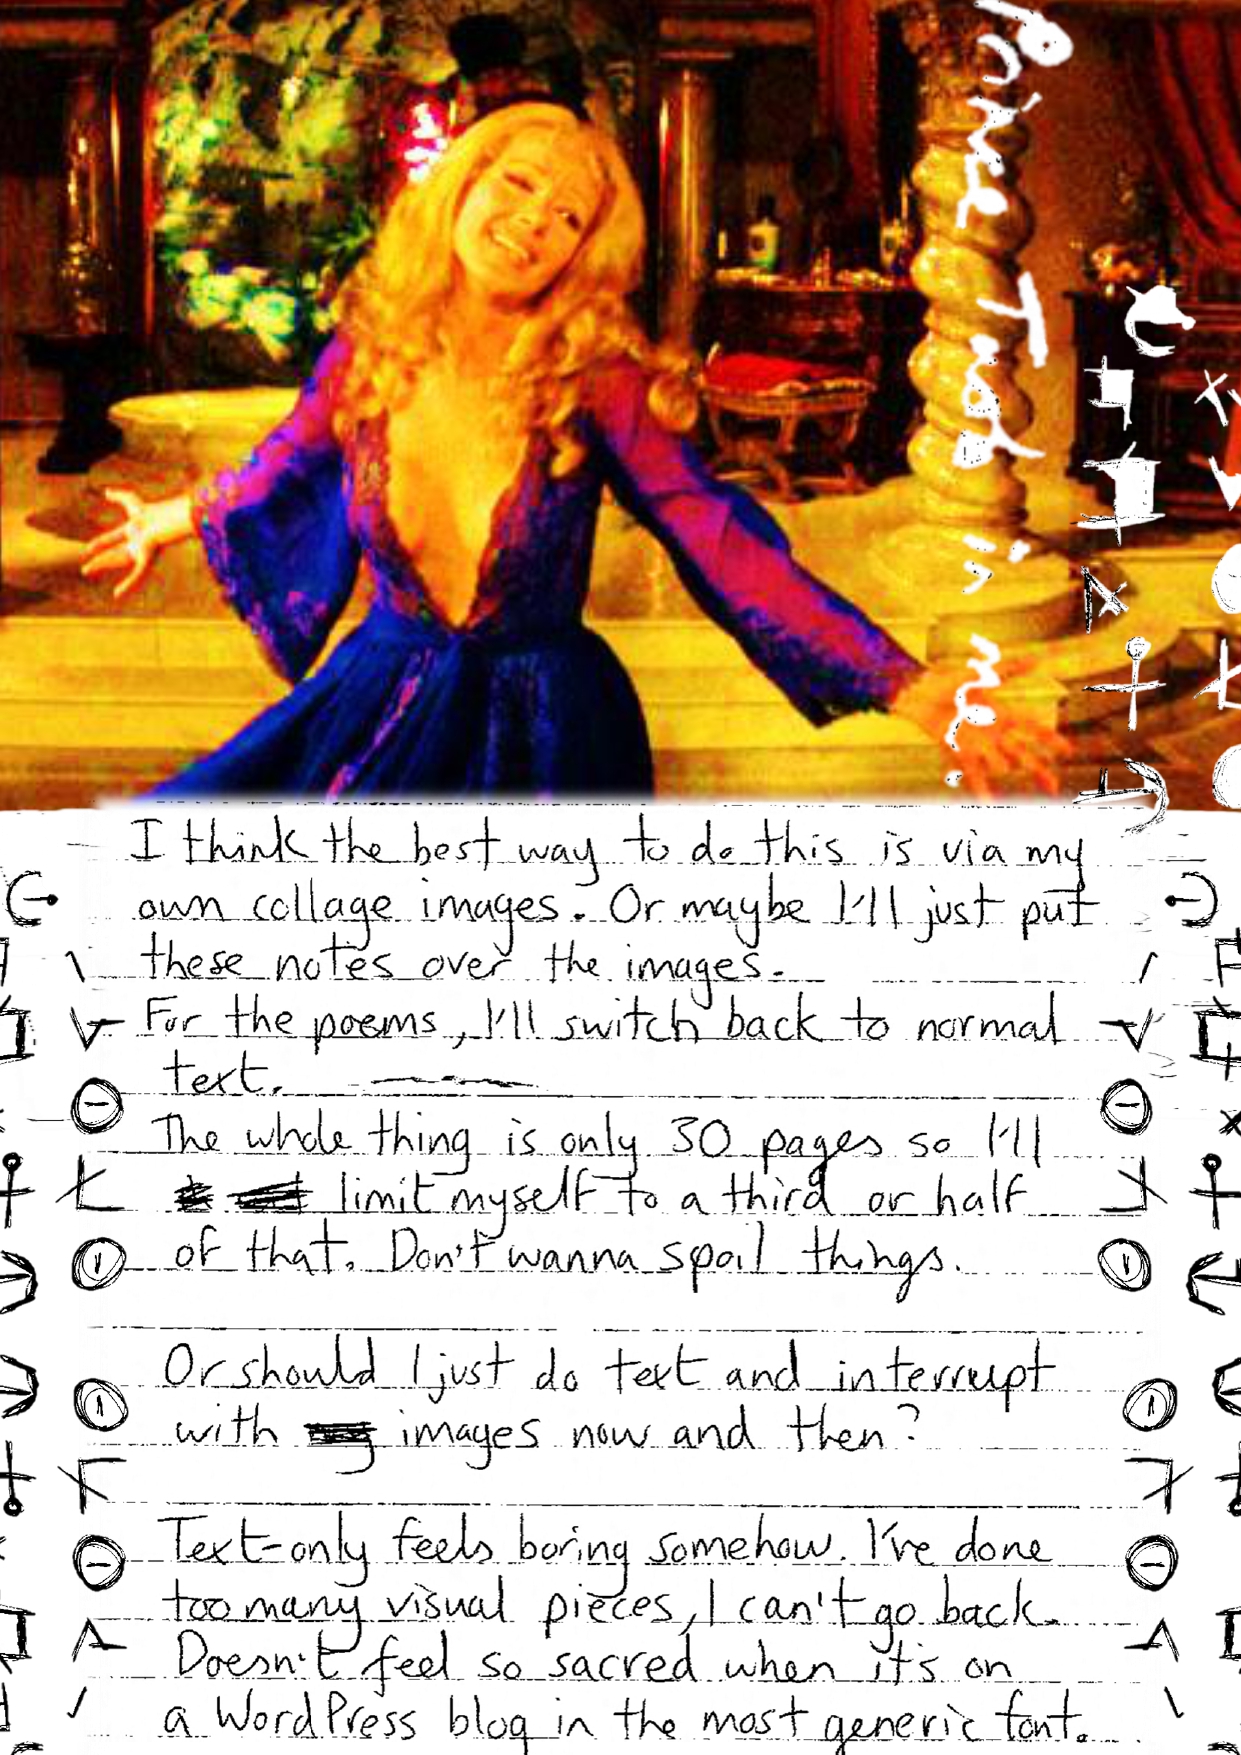 Prince Toad is me.
I think the best way to do this is via my
own collage images. Or maybe I'll just put
these notes over the images.
For the poems, I'll switch back to normal
text.
The whole thing is only 30 pages so I'll
limit myself to a third or half
of that. Don't wanna spoil things.
Or should I just do text and interrupt
with images now and then?
Text-only feels boring somehow. I've done
too many visual pieces, I can't go back.
Doesn't feel so sacred when it's on
a WordPress blog in the most generic font.